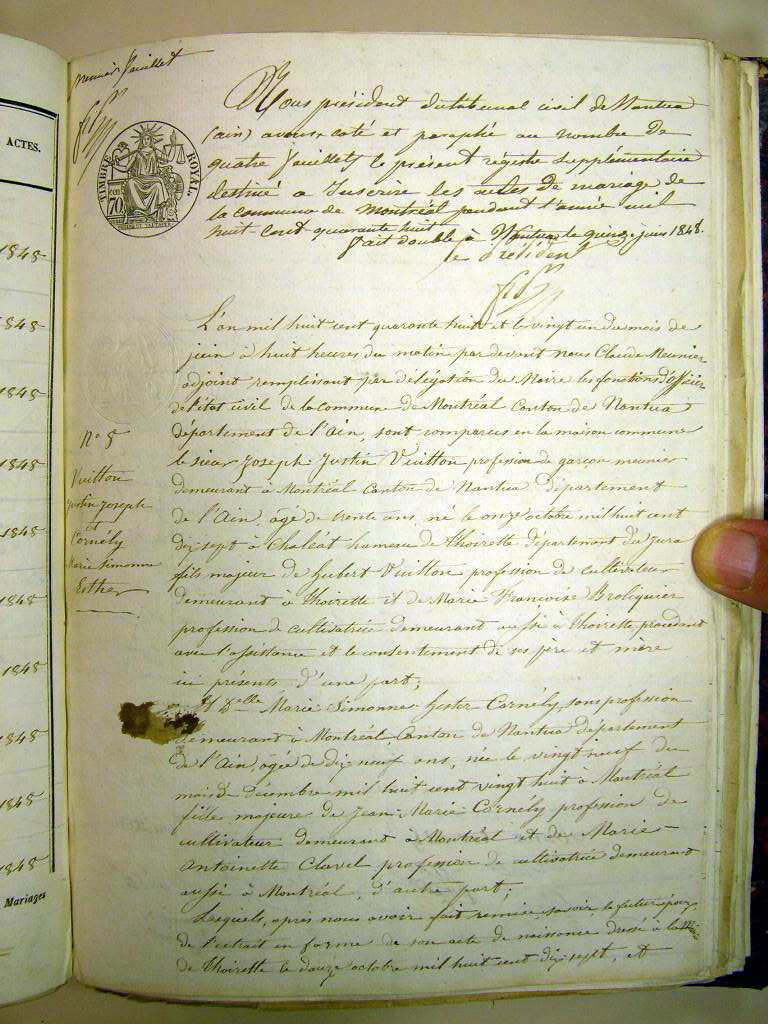 ACTES.
1848
1848
1848
1848
1848
1848
1848
1848
1848
Mariages
premier feuillet
TIMBRE ROYAL.
70
Nous président du tribunal civil de Nantua
(ain) avons coté et paraphé au nombre de
quatre feuillets le présent régistre supplémentaire
destiné a Inscrire les actes de mariage de
la commune de Montréal pendant l'année mil
huit cent quarante huit
fait double à Nantua le quinze juin 1848.
le Président
L'an mil huit cent quarante huit et le vingt un du mois de
juin à huit heures du matin par devant nous Claude Meunier
adjoint remplissant par délégation du Maire les fonctions d'officier
de l'état civil de la commune de Montréal Canton de Nantua
département de l'Ain, sont comparus en la maison commune
le sieur Joseph Justin Vuitton profession de garçon meunier
demeurant à Montréal Canton de Nantua département
de l'Ain, âgé de trente ans, né le onze octobre mil huit cent
dix sept à Chaléat hameau de Thoirette département du Jura
fils majeur de Hubert Vuitton profession de cultivateur
demeurant à Thoirette et de Marie Françoise Broliquier
profession de cultivatrice demeurant aussi à Thoirette procédant
avec l'assistance et le consentement de ses père et mère
ici présents d'une part;
Et Delle Marie Simonne Hester Cornély, sans profession
demeurant à Montréal, Canton de Nantua département
de l'Ain, agée de dix neuf ans, née le vingt neuf du
mois de Décembre mil huit cent vingt huit à Montréal
fille majeure de Jean Marie Cornély profession de
cultivateur demeurant à Montréal et de Marie
Antoinette Clavel profession de cultivatrice demeurant
aussi à Montréal, d'autre part;
Lesquels, après nous avoir fait remise, savoir, le futur époux
de l'extrait en forme de son acte de naissance dressé à la
de Thoirette le douze octobre mil huit cent dix sept, et
N° 5
Vuitton
Justin Joseph
et
Cornély
Marie Simonne
Esther